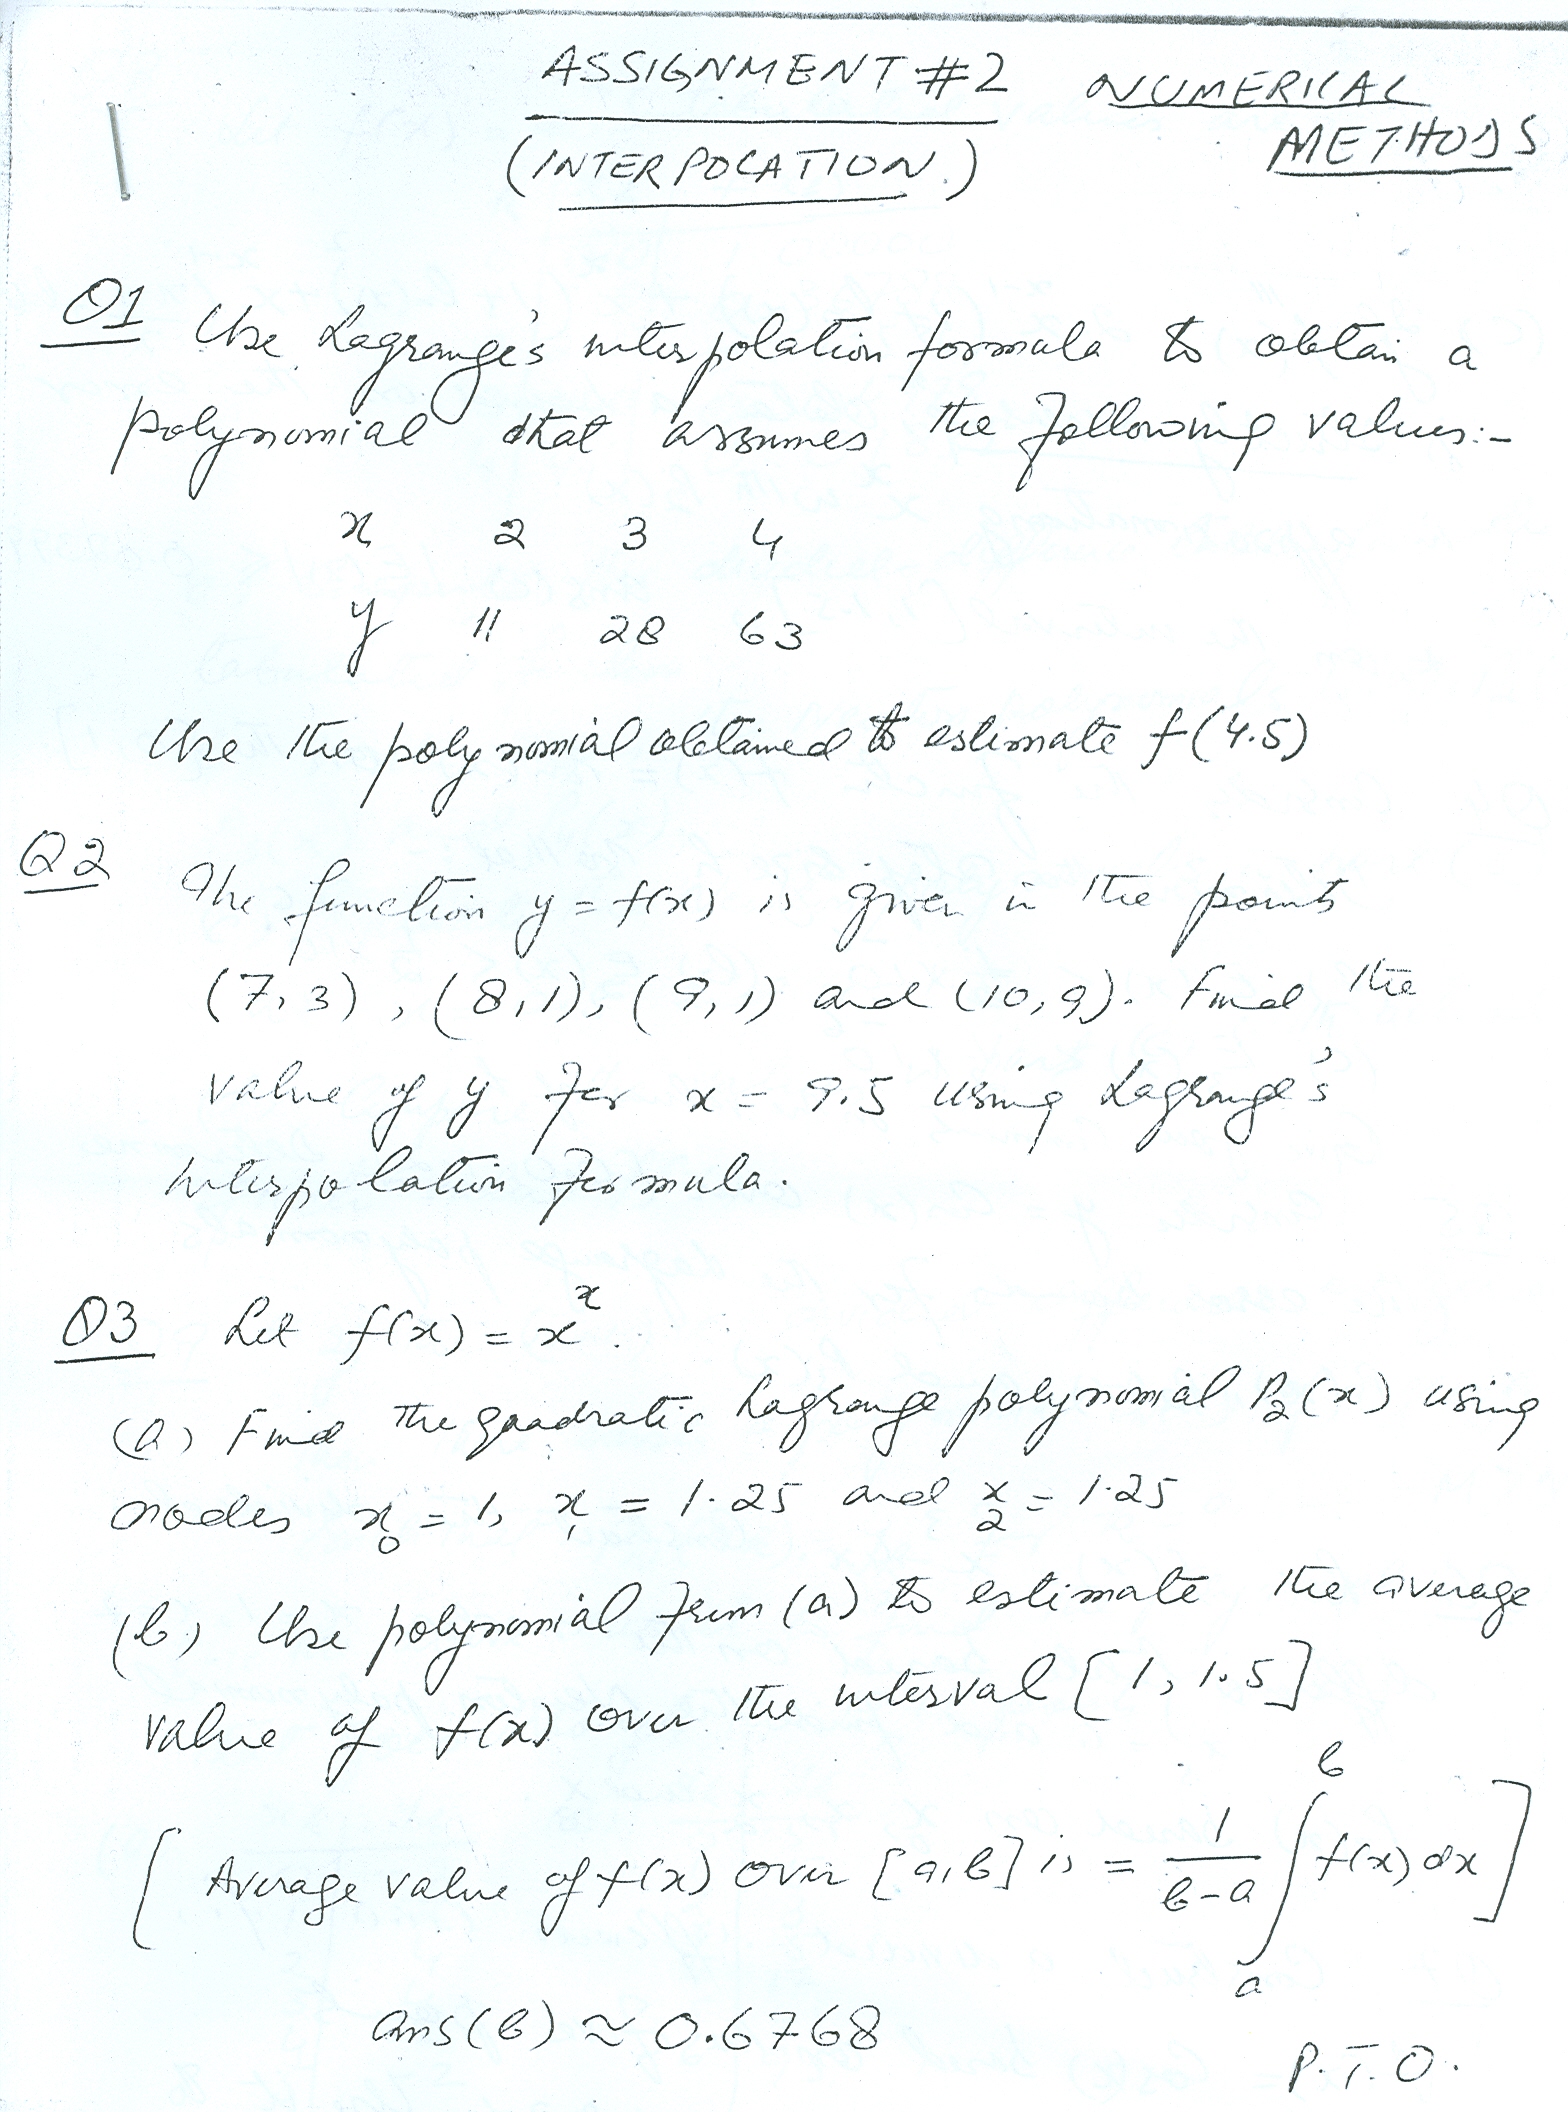 ASSIGNMENT #2 NUMERICAL
(INTERPOLATION.) METHODS
Q1 Use Lagrange's interpolation formula to obtain a
polynomial that assumes the following values:-
x 2 3 4
y 11 28 63
Use the polynomial obtained to estimate f(4.5)
Q2 The function y = f(x) is given in the points
(7,3), (8,1), (9,1) and (10,9). Find the
value of y for x = 9.5 using Lagrange's
interpolation formula.
Q3 Let f(x) = x^x.
(a) Find the quadratic Lagrange polynomial P₂(x) using
nodes x₀ = 1, x₁ = 1.25 and x₂ = 1.25
(b) Use polynomial from (a) to estimate the average
value of f(x) over the interval [1, 1.5]
[Average value of f(x) over [a,b] is = 1/(b-a) ∫ₐᵇ f(x) dx]
ans(b) ≈ 0.6768
P.T.O.